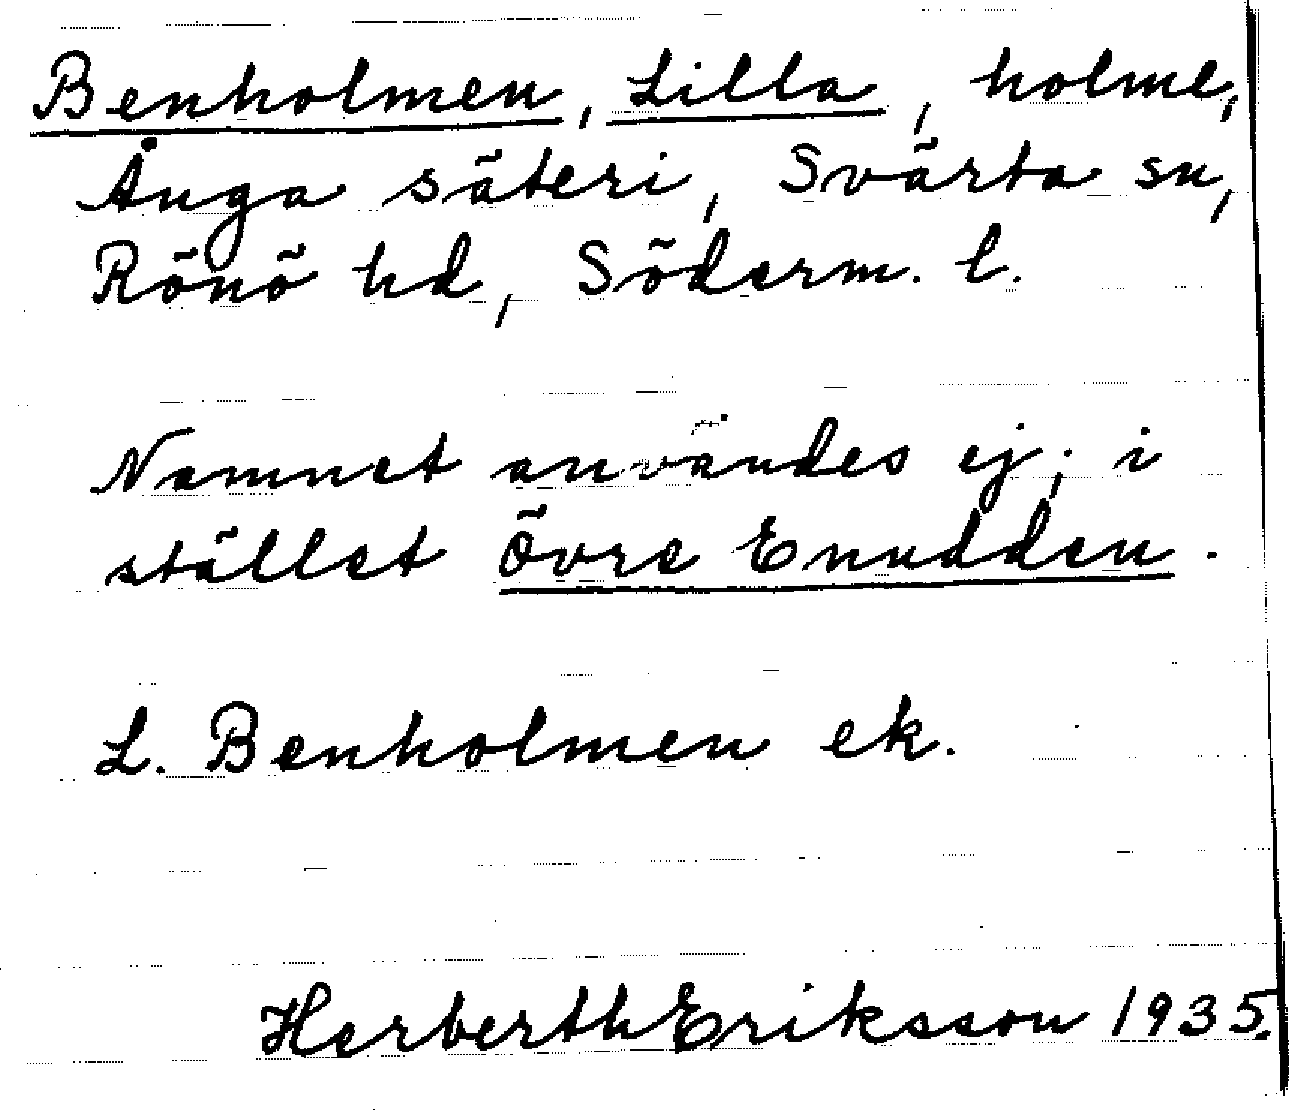 Benholmen, Lilla, holme,
Ånga säteri, Svärta sn,
Rönö hd, Söderm. l.
Namnet användes ej; i
stället Övre Enudden.
L. Benholmen ek.
Herberth Eriksson 1935.